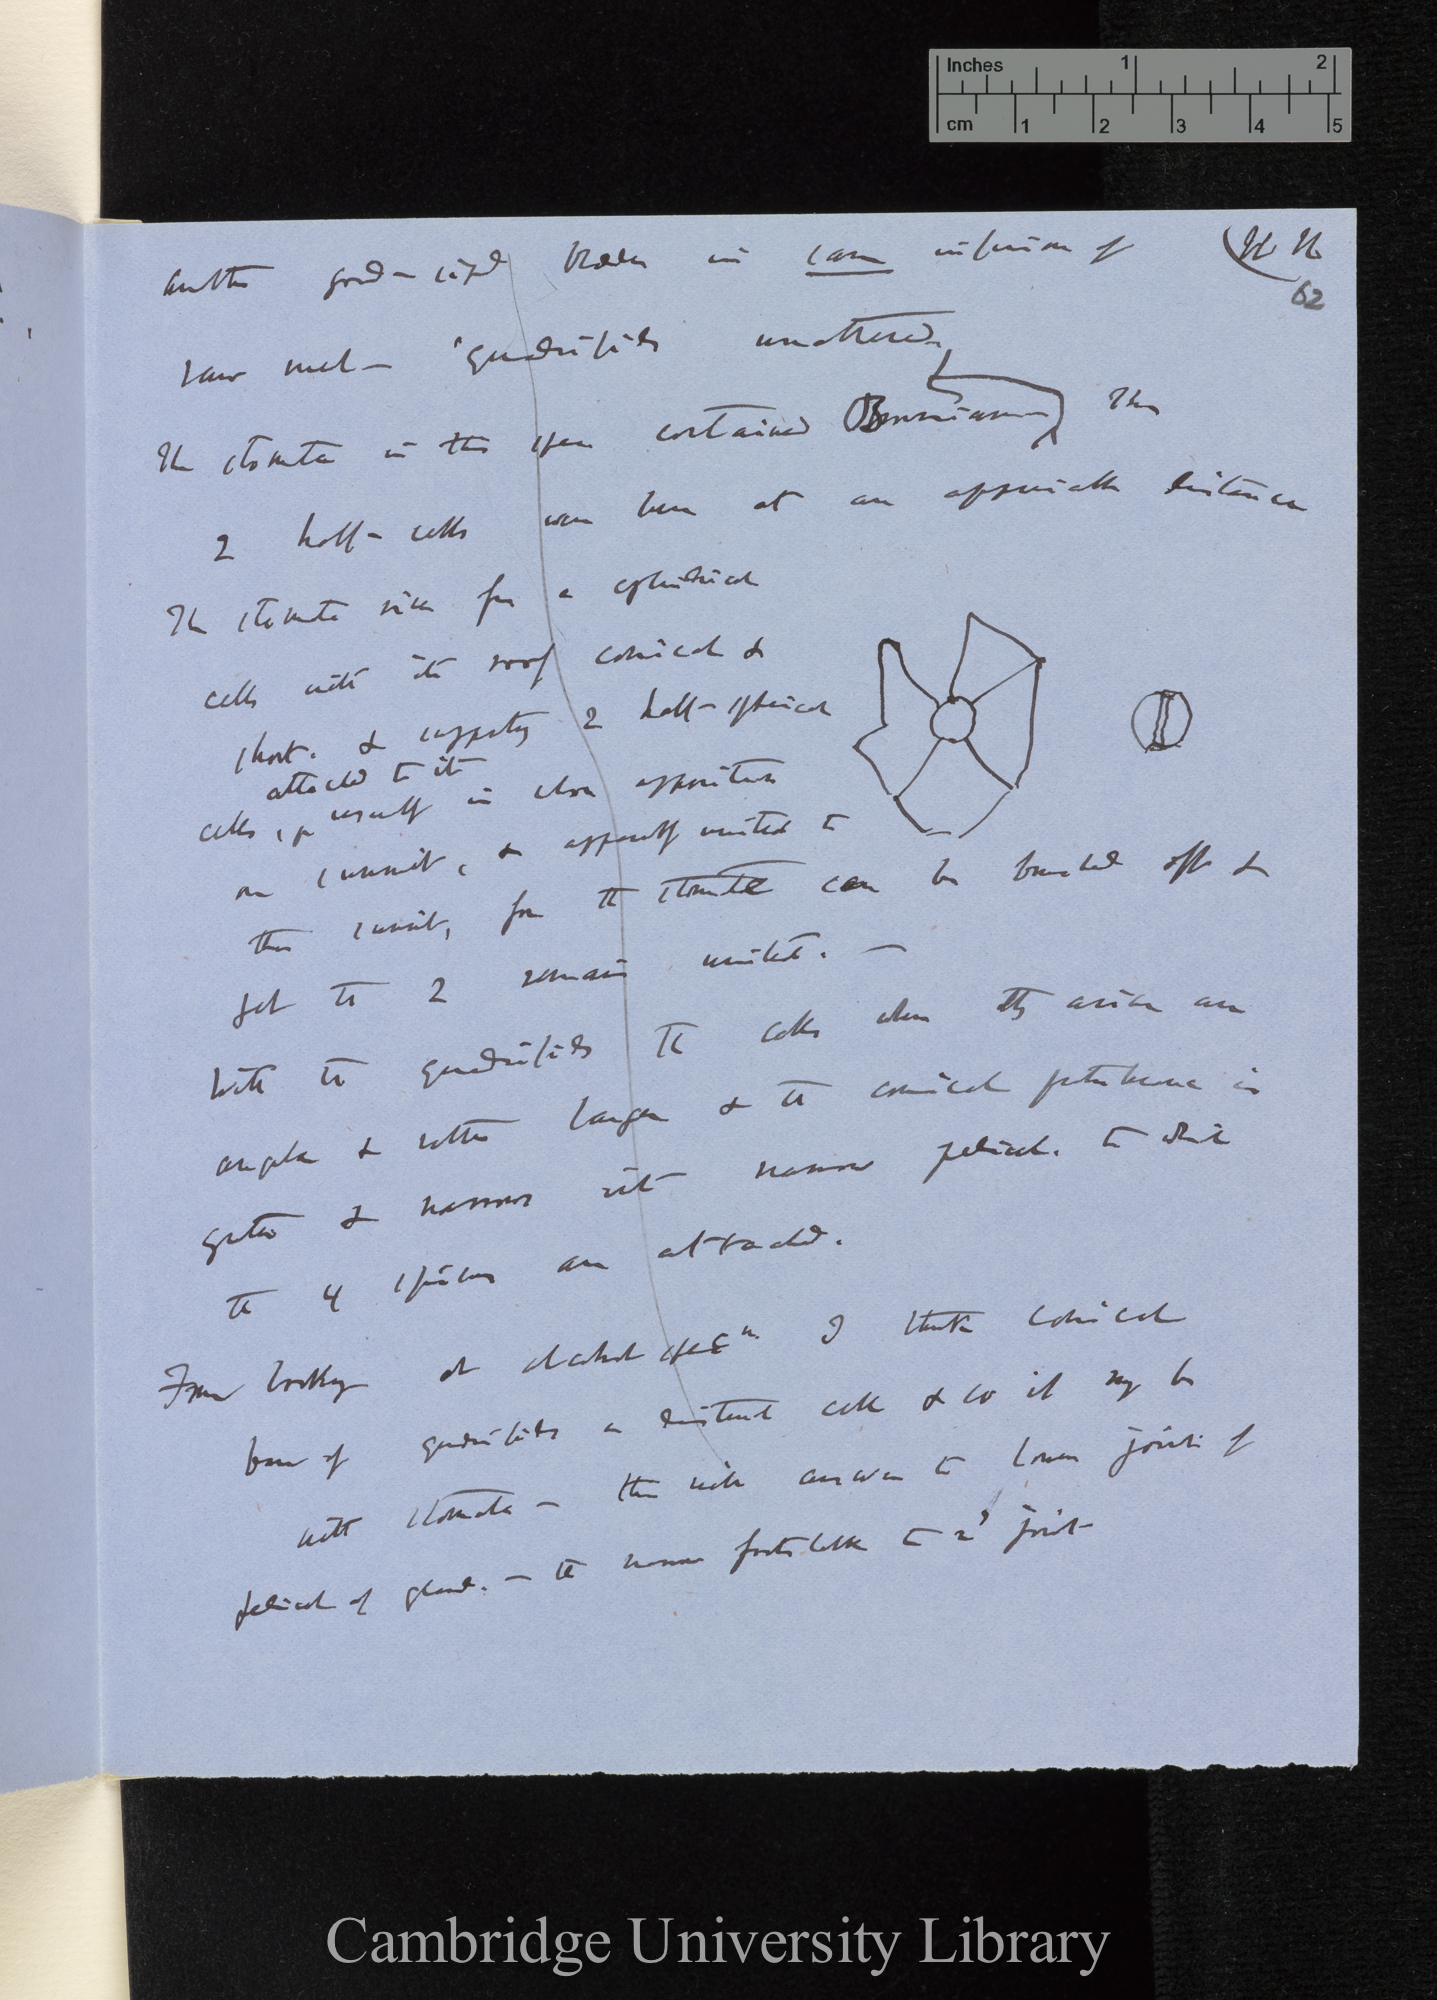 Inches 1 2
cm 1 2 3 4 5
62
Another good-sized bladder in same infusion of
raw meat — quadrifids unaltered.
The stomata in this spec contained Brownian This
2 half-cells were here at an appreciable distance
The stomata rises from a cylindrical
cells with its roof conical &
short. & supports 2 half-spherical
attached to its
cells, usually in close apposition
on summit, & apparently united to
this summit, for the stomata can be brushed off &
yet the 2 remain united. —
With the quadrifids the cells when they arise are
angular & rather larger & the conical protuberance is
greater & narrows into narrow pedicel. to which
the 4 spines are attached.
From looking at alcohol specn I think conical
base of quadrifids a distinct cell & so it may be
with stomata — this wd answer to lower joint of
pedicel of gland. — the narrow footstalk to 2d joint
Cambridge University Library